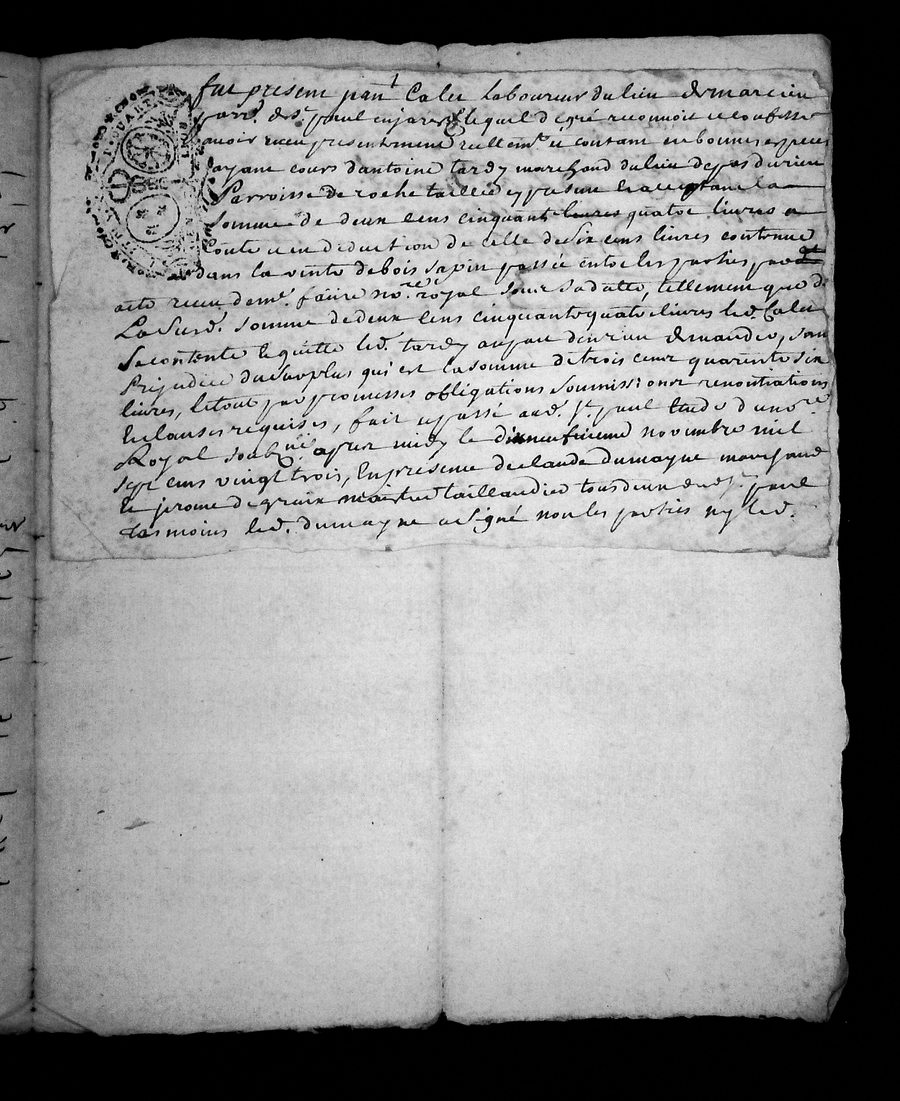 fut présent pan Calu laboureur du lieu de marcieu
parr. de St. paul en jarest lequel de gré reconnoit et confesse
avoir receu presentement reellemt. et contant en bonnes especes
ayant cours d'antoine tardy marchand du lieu de du rieu
Parroisse de roche taillée y present et acceptant la
somme de deux cens cinquante quatre livres a
Conte et en deduction de celle de six cens livres contenue
dans la vente de bois sapin passée entre les parties par
acte receu de me. faure nore. royal sous sa datte, tellement que de
La susd. somme de deux cens cinquante quatre livres led. Calu
se contente le quitte led. tardy demander, sans
Prejudice du surplus qui est la somme de trois cens quarente six
livres, le tout par promesses obligations soumissions renontiations
Et clauses requises, fait et passé aud. St. paul etude du nore.
Royal soubné. apres midy le dixneufvieme novembre mil
sept cens vingt trois, En presence de claude dumayne marchand
et jerome degraix maitre taillandier tous deux dud. St. paul
tesmoins led. dumayne a signé non les parties ny led.